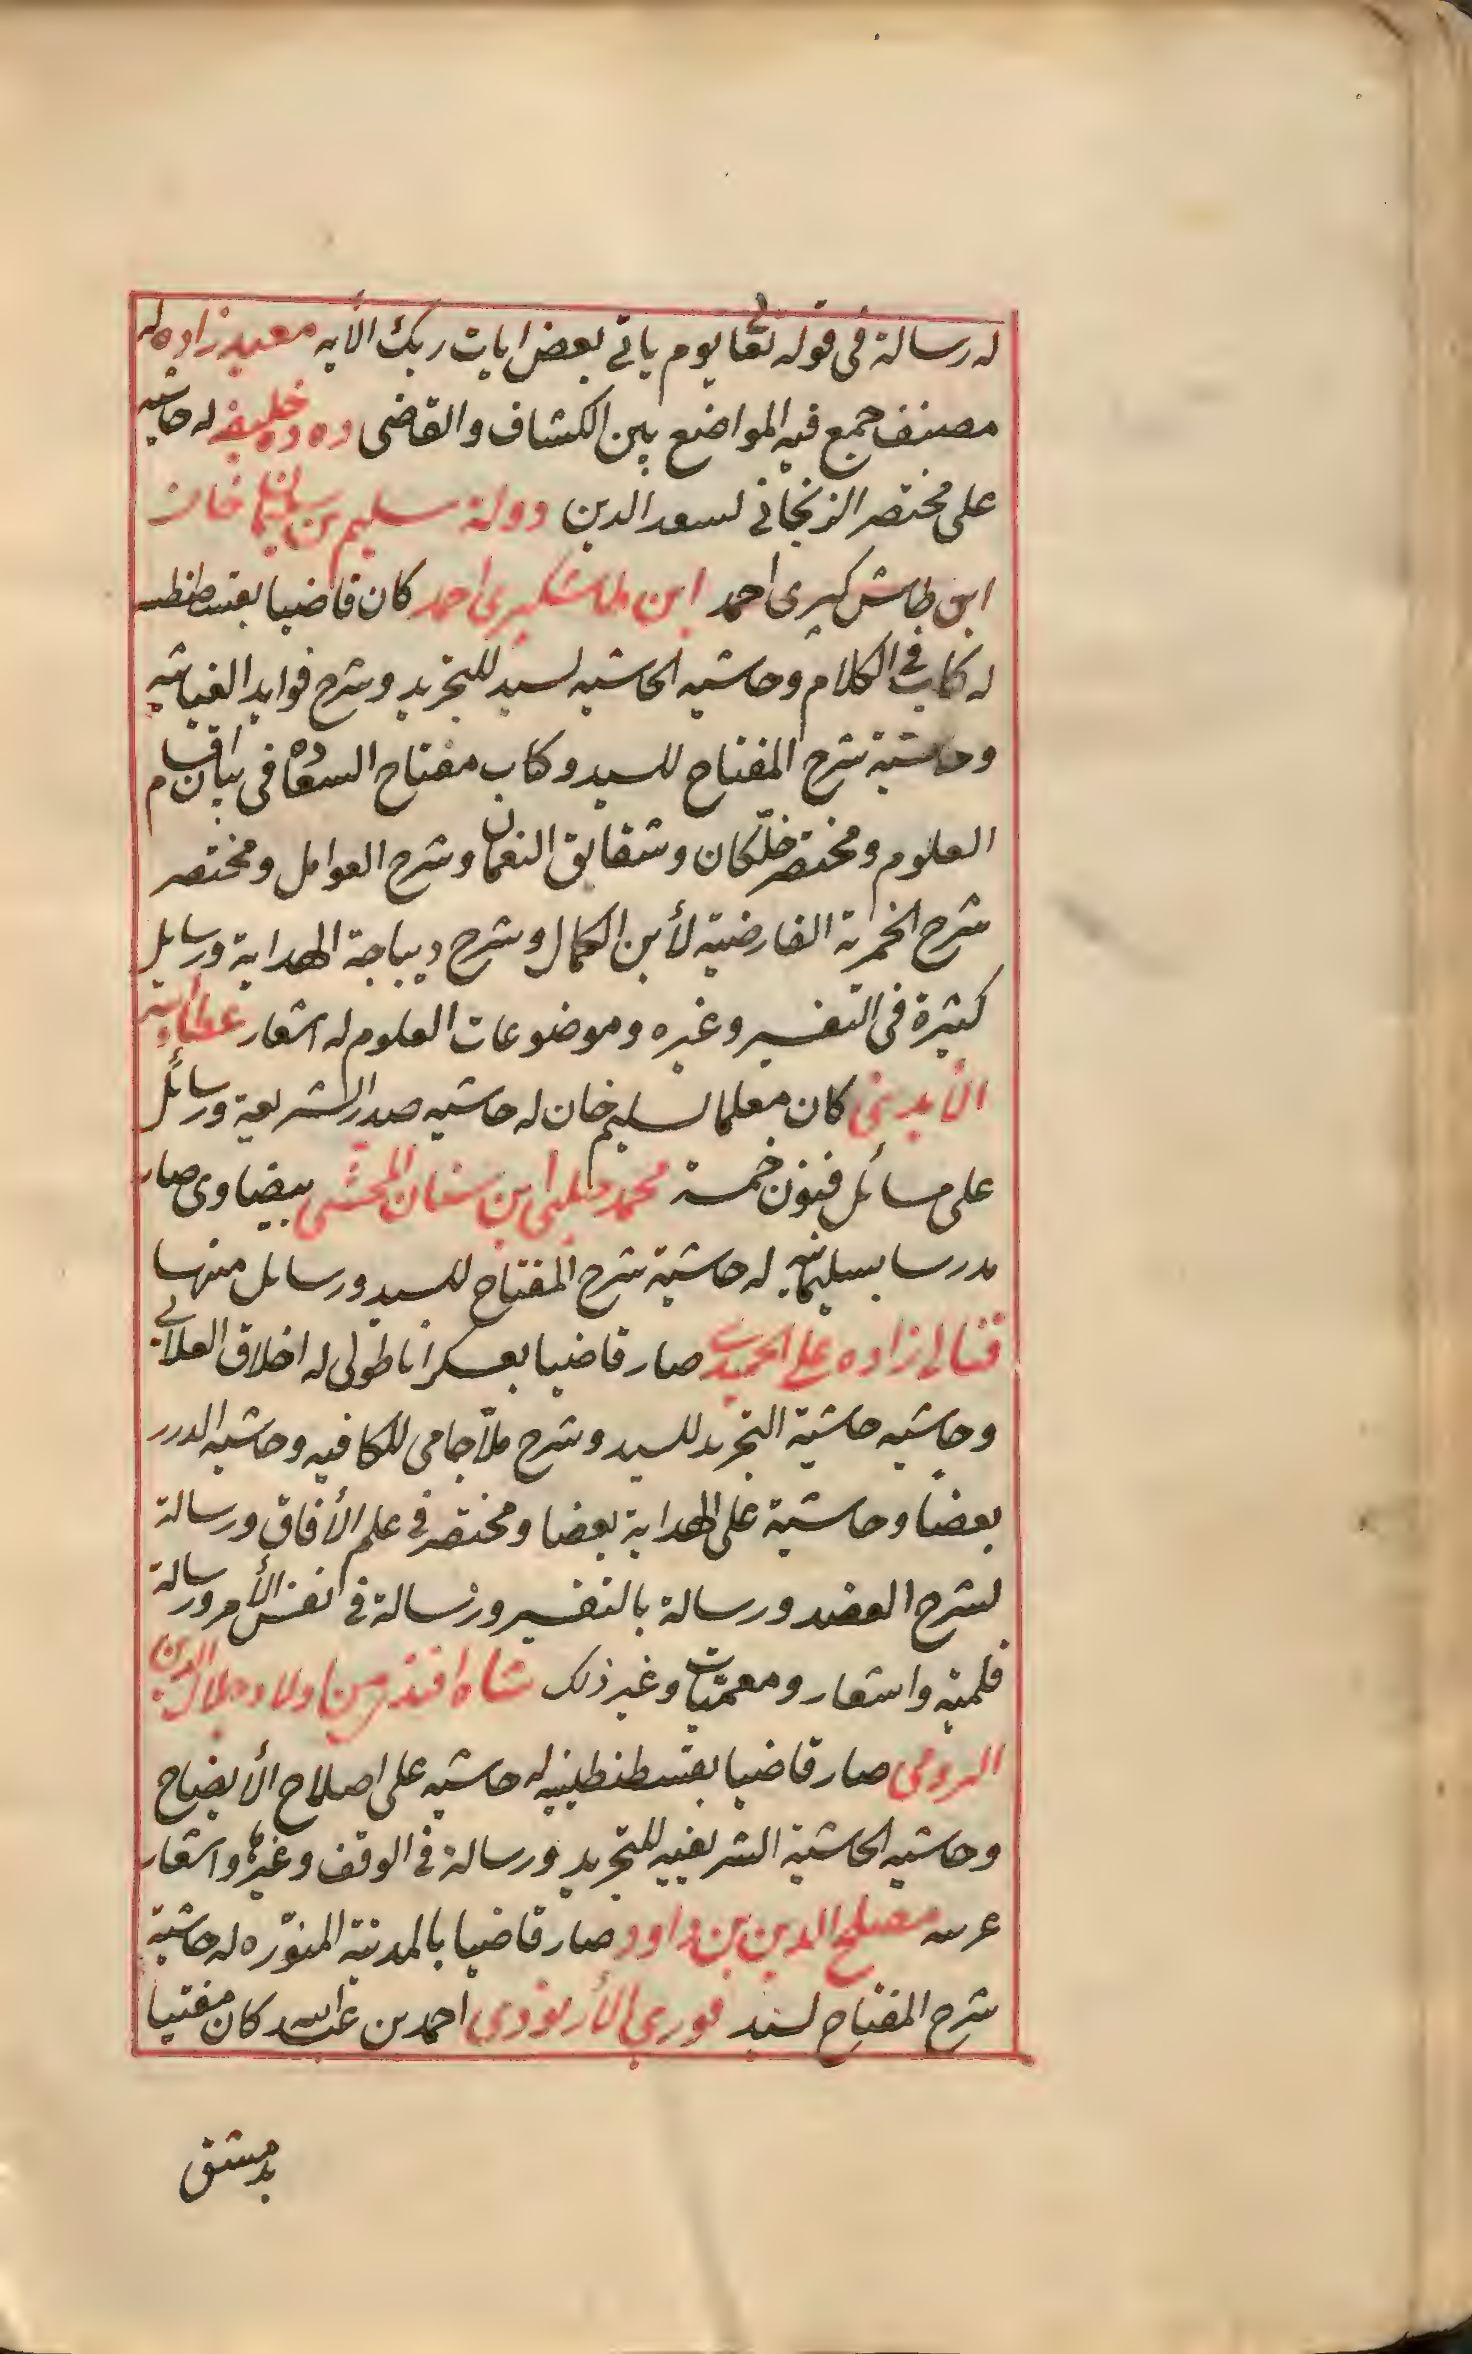 له رسالة فى قوله تعا يوم ياتى بعض ايات ربك الآيه معيد زاده له
مصنف جمع فيه المواضع بين الكشاف والقاضى ده ده خليفه له حاشيه
على مختصر الزنجانى لسعد الدين دولة سليم بن سليمان خان
ابن طاش كبرى احمد ابن طاشكبرى احمد كان قاضيا بقسطنطنيه
له كتاب فى الكلام وحاشيه الحاشيه لسيد للتجريد وشرح فوايد الغياثيه
وحاشية شرح المفتاح للسيد وكتاب مفتاح السعاده فى بيان اقسام
العلوم ومختصر خلّكان وشقايق النعمان وشرح العوامل ومختصر
شرح الخمرية الفارضية لأبن الكمال وشرح ديباجة الهداية ورسايل
كثيرة فى التفسير وغيره وموضوعات العلوم له اشعار عطاء الله
الايدينى كان معلما لسليم خان له حاشيه صدر الشريعة ورسائل
على مسائل فنون خمسة محمد چلبى ابن سنان المحشى بيضاوى صار
مدرسا بسليمانيه له حاشية شرح المفتاح للسيد ورسايل منها
قنالى زاده على الحميدى صار قاضيا بعسكر اناطولى له اخلاق العلائى
وحاشيه حاشية التجريد للسيد وشرح ملّا جامى للكافيه وحاشيه الدرر
بعضا وحاشية على الهداية بعضا ومختصر فى علم الأفاق ورسالة
لشرح العضد ورسالة بالتفسير ورسالة فى نفس الأمر ورسالة
قلميّه واشعار ومعميّات وغير ذلك شاه افندى من اولاد جلال الدين
الرومى صار قاضيا بقسطنطينيه له حاشيه على اصلاح الأيضاح
وحاشيه الحاشية الشريفيه للتجريد ورسالة فى الوقف وغيرها واشعار
عربيه مصلح الدين بن داود صار قاضيا بالمدينة المنوّره له حاشية
شرح المفتاح لسيد فورى الأرنودى احمد بن عبد الله كان مفتيا
بدمشق